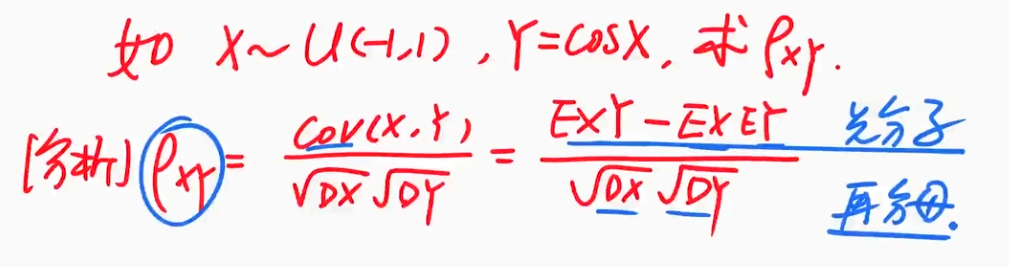 如 X~U(-1,1), Y=cosX, 求 ρXY.
[分析] ρXY = Cov(X,Y) / √DX √DY = EXY - EXEY / √DX √DY 先分子
再分母.